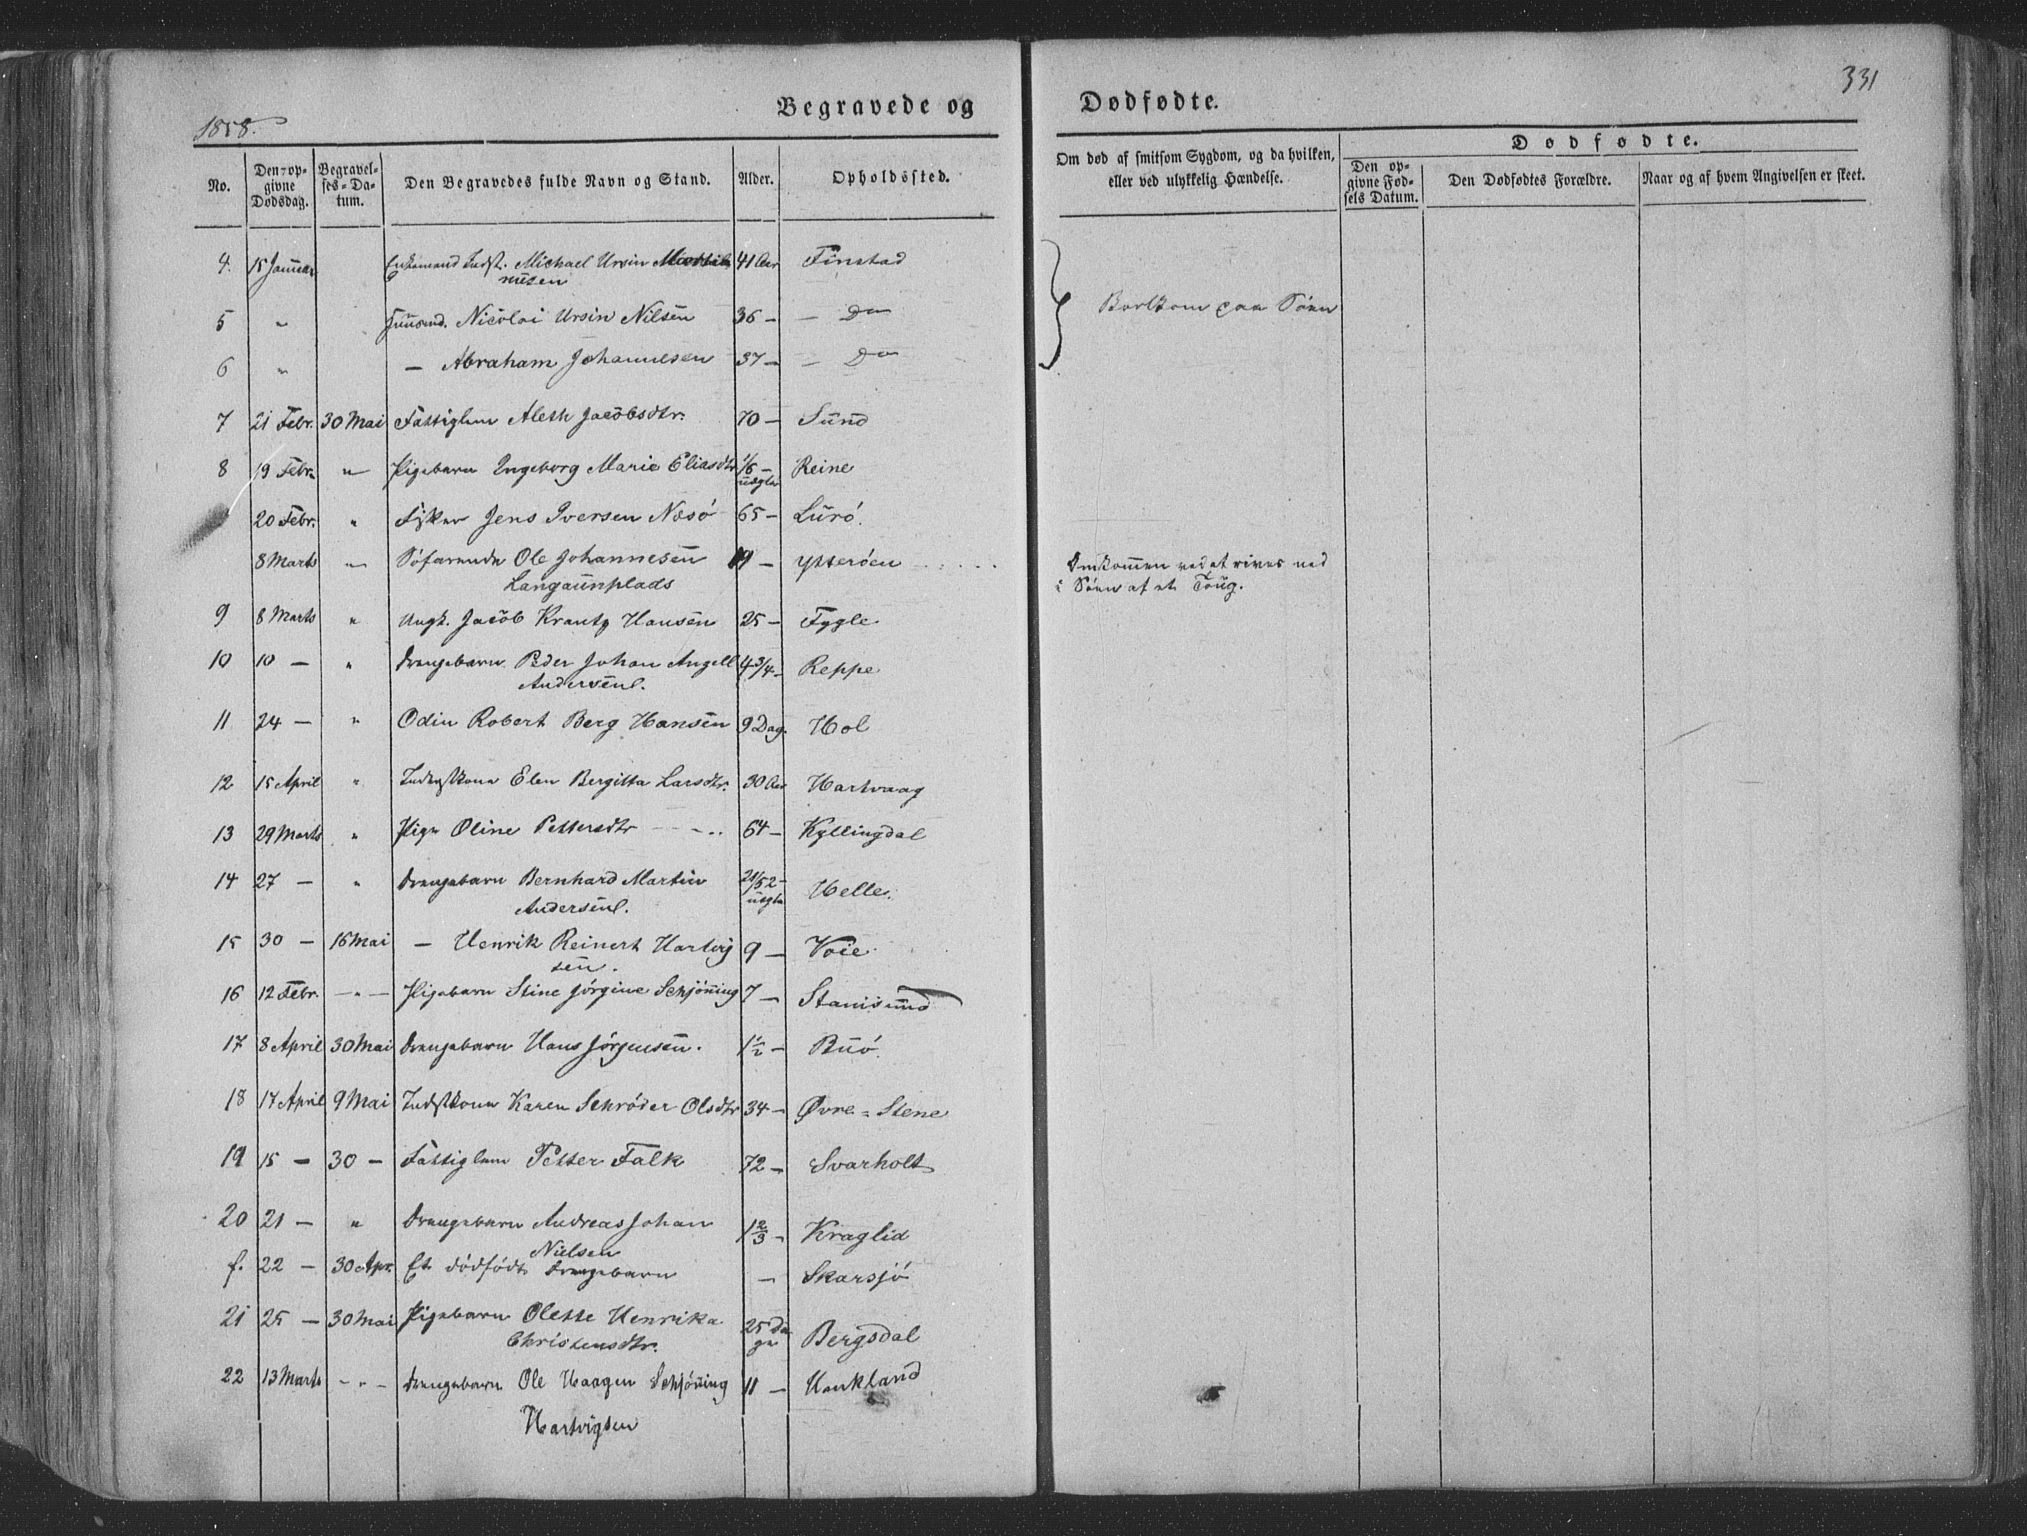 331
Begravede og Dødfødte.
1858.
No. Den opgivne Dødsdag. Begravelses-Datum. Den Begravedes fulde Navn og Stand. Alder. Opholdssted. Om død af smitsom Sygdom, og da hvilken, eller ved ulykkelig Hændelse. Dødfødte.
Den opgivne Fødsels Datum. Den Dødfødtes Forældre. Naar og af hvem Angivelsen er skeet.
4. 15 Januar Enkemand Indst. Michael Ursin Martinussen 41 Aar Finstad
5 " Huusmd. Nicolai Ursin Nilsen 36 — — Do Bortkom paa Søen
6 " — Abraham Johannesen 37 — — Do
7 21 Febr. 30 Mai Fattiglem Aleth Jacobsdtr. 70 — Sund
8 19 Febr. " Pigebarn Ingeborg Marie Eliasdtr 1/6 — uægte Reine
20 Febr. " Fisker Jens Iversen Næsø 65 — Lurö.
8 Marts " Søfarende Ole Johannesen 19 — Ytterøen Omkommen ved at rives ned
Langaunplads i Søen af et Toug.
9 8 Marts " Ungk. Jacob Krantz Hansen 25 — Fygle
10 10 — " Drengebarn Peder Johan Angell 4 3/4 — Reppe
Andersen.
11 24 — " Odin Robert Berg Hansen 9 Dag. Hol
12 15 April " Inderstkone Elen Bergitta Larsdtr. 30 Aar Hartvaag
13 29 Marts " Pige Oline Pettersdtr 64 — Kyllingdal
14 27 — " Drengebarn Bernhard Martin 21/52 — uægte Helle.
Andersen.
15 30 — 16 Mai — Henrik Reinert Hartvig 9 — Voie
sen.
16 12 Febr. — " — Pigebarn Stine Jörgine Schjöning 7 — Stamsund
17 8 April 30 Mai Drengebarn Hans Jörgensen. 1 1/2 — Buö.
18 17 April 9 Mai Indstkone Karen Schrøder Olsdtr 34 — Øvre-Stene
19 15 — 30 — Fattiglem Petter Falk 72 — Svarholt
20 21 — " Drengebarn Andreas Johan 1 2/3 — Kraglid
Nielsen
f. 22 — 30 Apr. Et dödfödt Drengebarn — Skarsjö
21 25 — 30 Mai Pigebarn Olette Henrika 25 Dage Bergsdal
Christensdtr.
22 13 Marts — " — Drengebarn Ole Haagen Schjöning 11 — Haukland
Hartvigsen